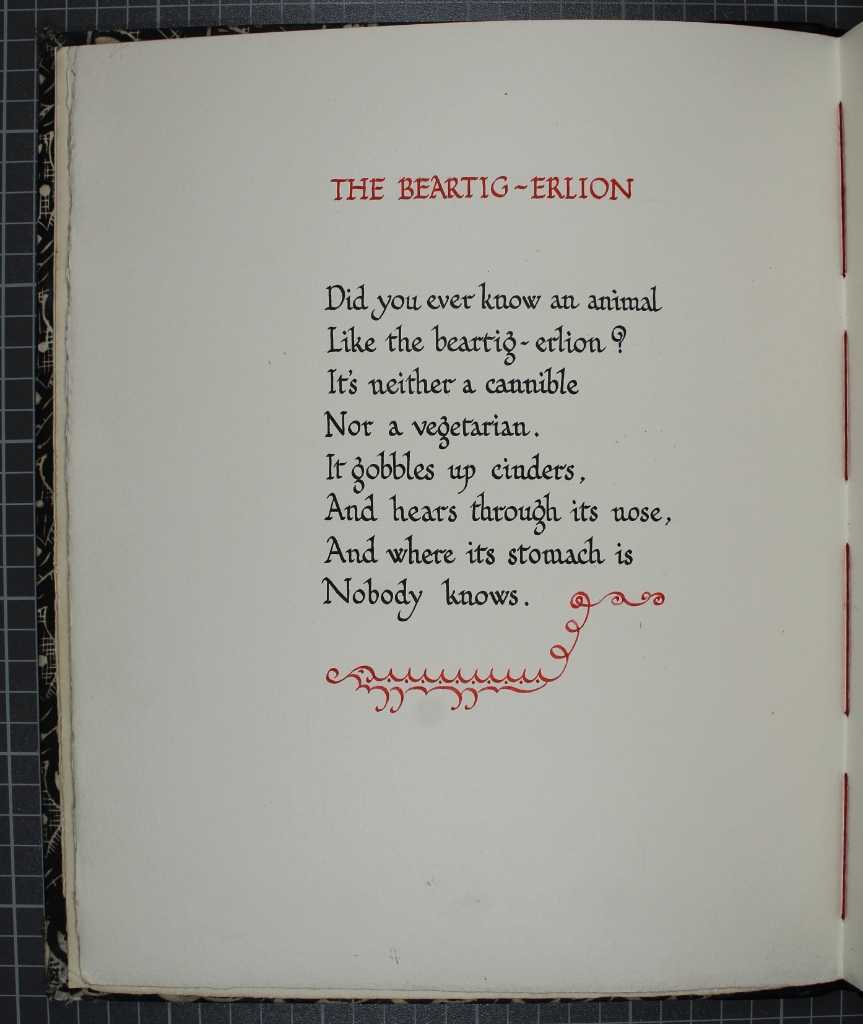 THE BEARTIG~ERLION
Did you ever know an animal
Like the beartig-erlion?
It's neither a cannible
Nor a vegetarian.
It gobbles up cinders,
And hears through its nose,
And where its stomach is
Nobody knows.